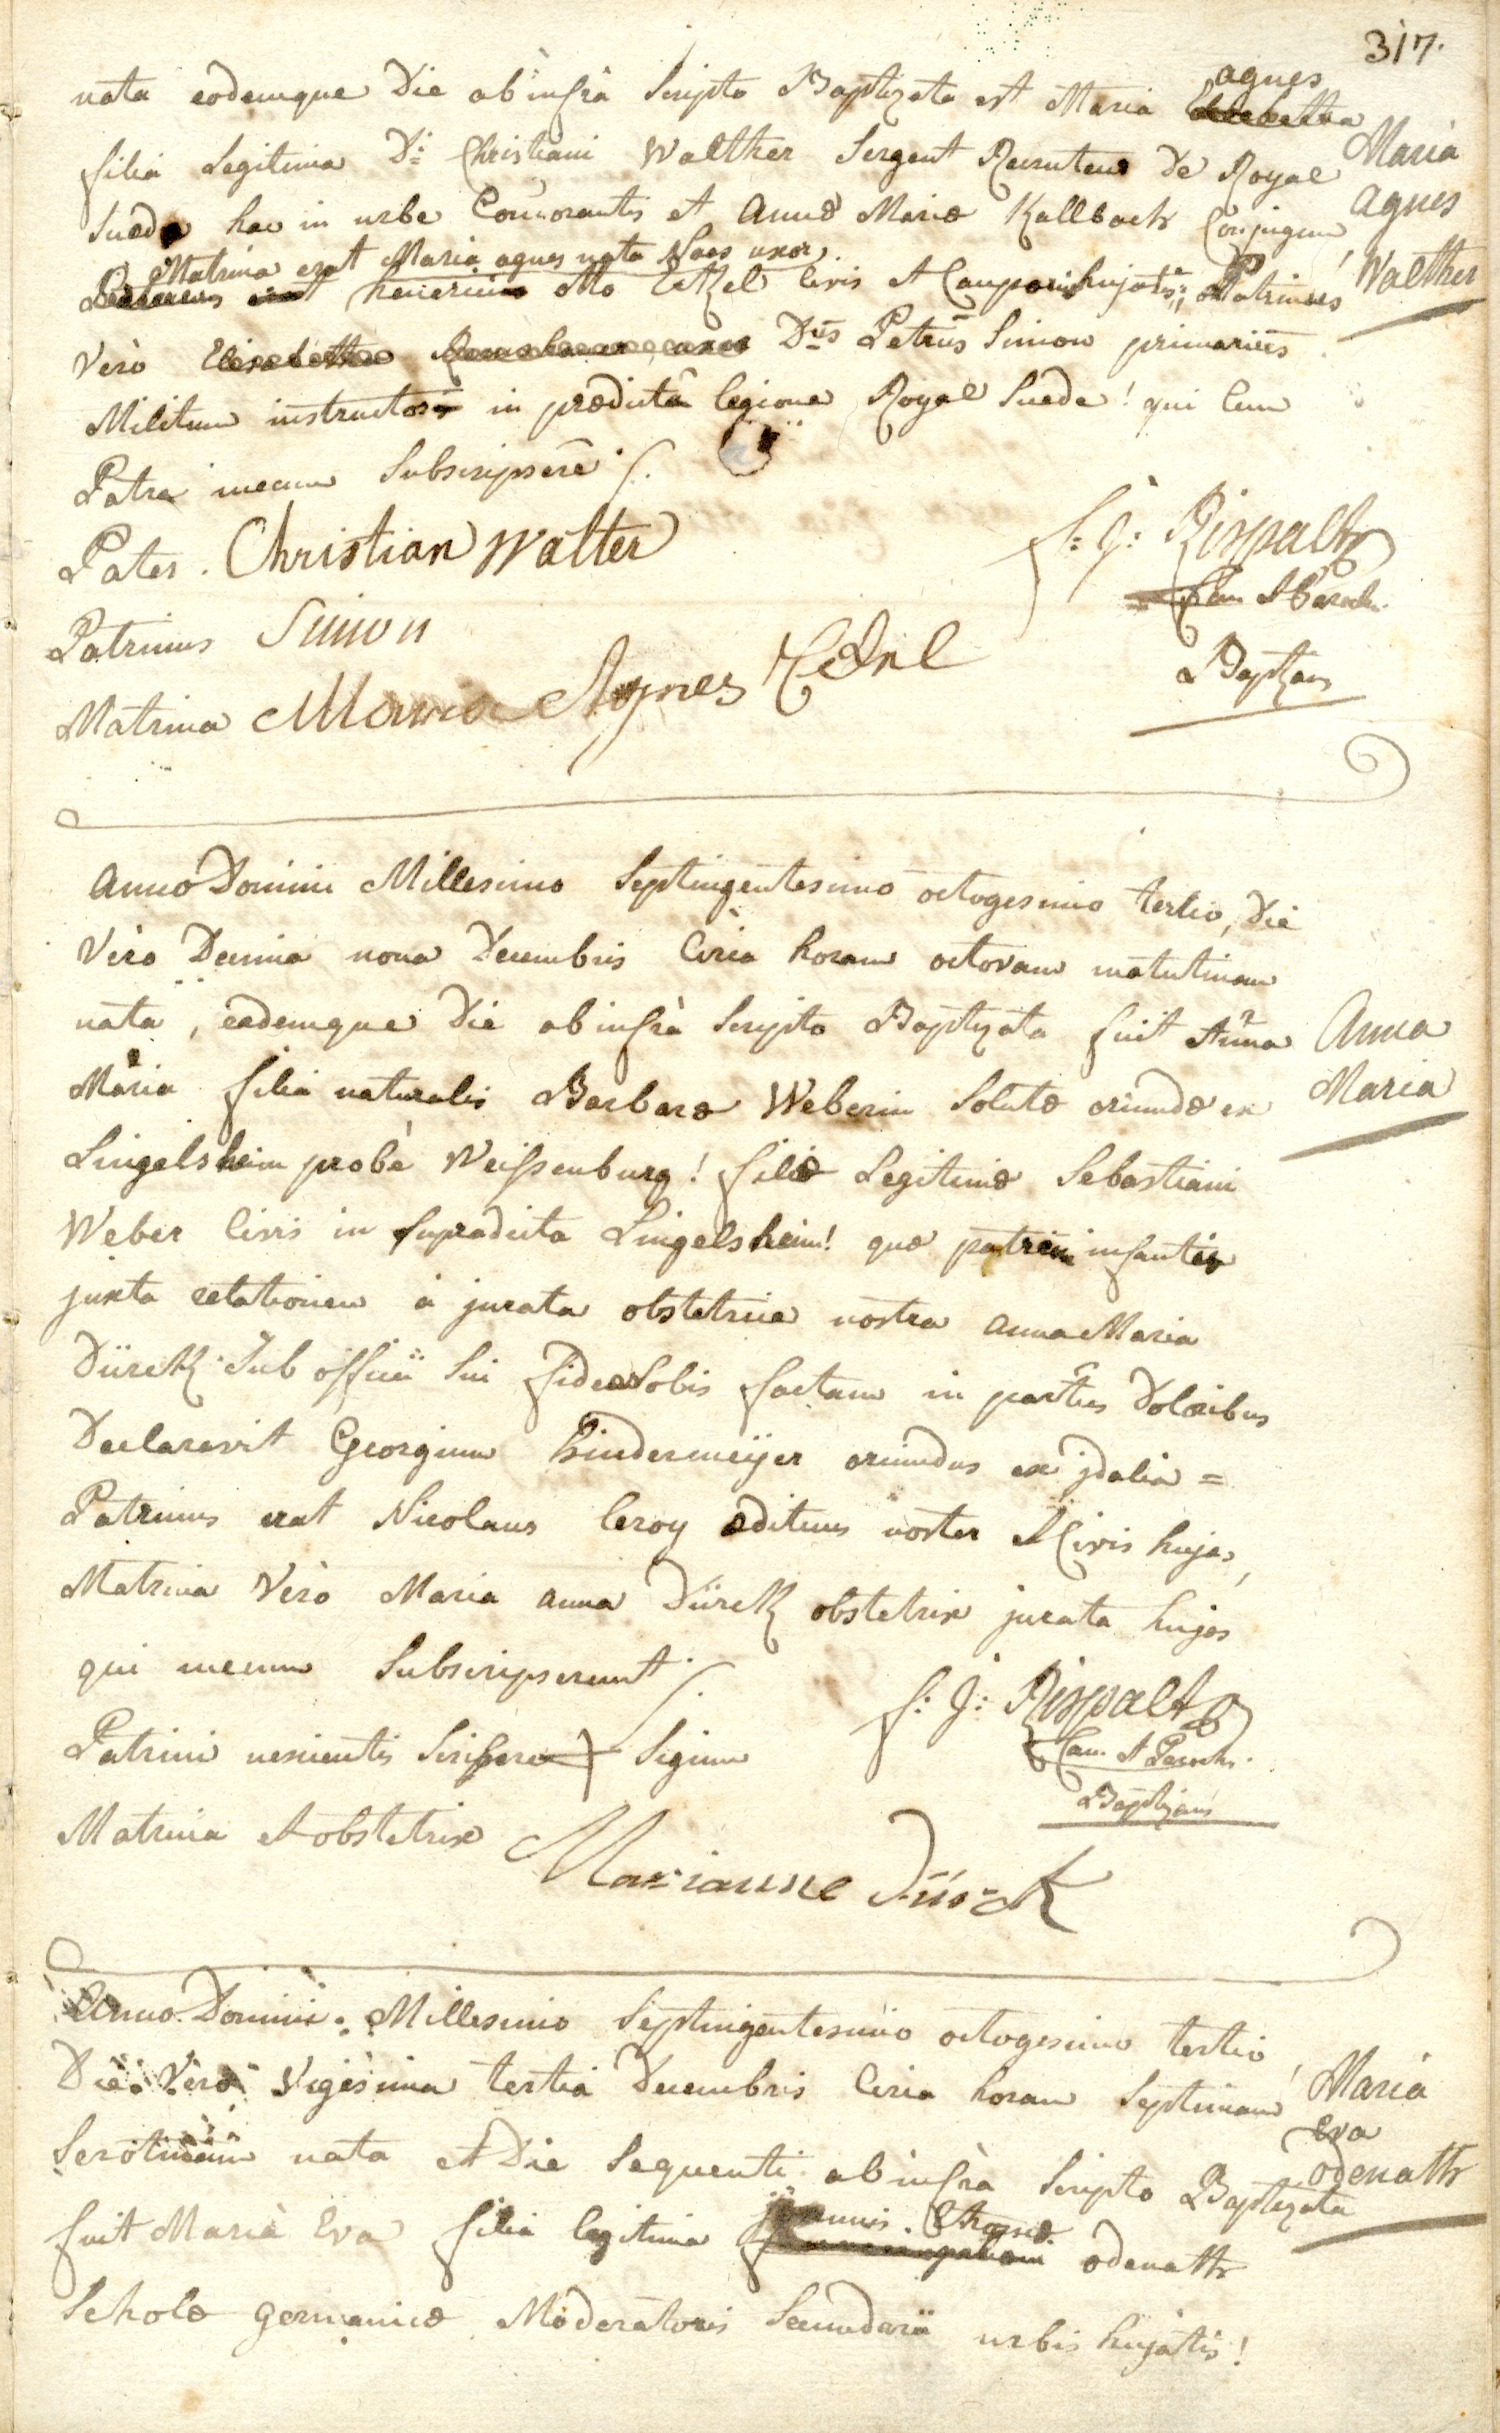 317.
nata eodemque Die ab infrà scripto Baptizata est Maria agnes
filia Legitima D: Christiani Walther Sergent Recruteur De Royal
Maria
agnes
Walther
Suede hac in urbe Commorantis et Annæ Mariæ Kallbach Conjugum,
Matrina erat Maria agnes nata Naes uxor
henerici otto Eckel Civis et Cauponis hujatis; Patrinus
Verò D:us Petrus Simon primarius
Militum instructor in prædictâ legione Royal Suede! qui Cum
Patre mecum Subscripsere ./.
Pater . Christian Walter
f: J: Rispalt
Can. et Paroch.
Patrinus Simon
Baptizans
Matrina Maria Agnes
Anno Domini Millesimo Septingentesimo octogesimo tertio, Die
Verò Decima nona Decembris Circa horam octavam matutinam
nata, eademque Die ab infrà scripto Baptizata fuit Anna
Anna
Maria
Maria filia naturalis Barbaræ Weberin Solutæ oriundæ ex
Lingelsheim probè Weissenburg! filiæ Legitimæ Sebastiani
Weber Civis in supradicta Lingelsheim! quæ patrem infantis
juxta relationem à jurata obstetrice nostra anna Maria
Dürck Sub officii Sui fide nobis factam in partus Doloribus
Declaravit Georgium hindermeijer oriundus ex jdalia =
Patrinus erat Nicolaus leroy ædituus noster et Civis hujas,
Matrina Verò Maria anna Dürck obstetrix jurata hujas
qui mecum Subscripserunt ./.
f: J: Rispalt
Can. et Paroch.
Baptizans
Patrini nescientis Scribere + Signum
Matrina et obstetrix Marianne Dürck
Anno Domini Millesimo Septingentesimo octogesimo tertio
Die Verò Vigesima tertia Decembris Circa horam Septimam
Maria
Eva
odenath
Serotinam nata et Die Sequenti ab infrà scripto Baptizata
fuit Maria Eva filia legitima joannis odenath
Scholæ germanicæ Moderatoris Secundarii urbis hujatis!